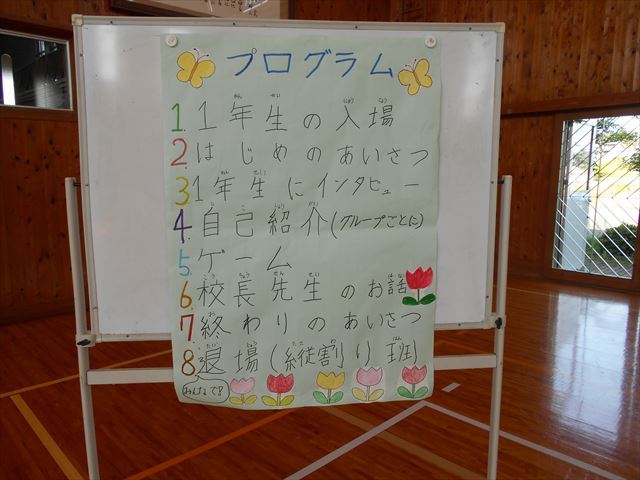 プログラム
1. 1年生の入場
2. はじめのあいさつ
3. 1年生にインタビュー
4. 自己紹介(グループごとに)
5. ゲーム
6. 校長先生のお話
7. 終わりのあいさつ
8. 退場(縦割り班)
みんなで!